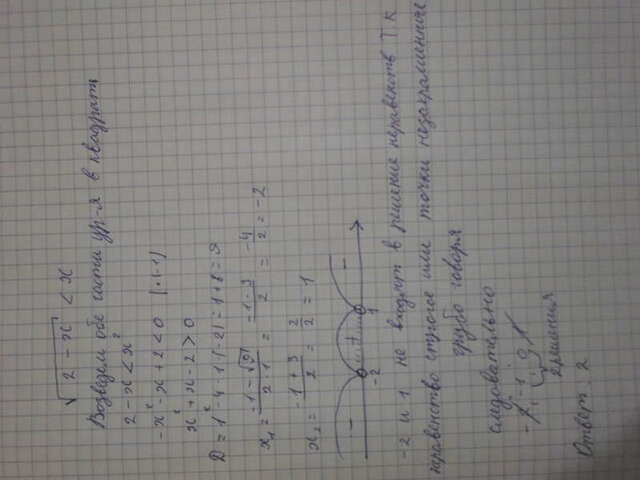 √(2 - x) < x
Возведем обе части ур-я в квадрат
2 - x < x²
-x² - x + 2 < 0 | · (-1)
x² + x - 2 > 0
D = 1² - 4 · 1 · (-2) = 1 + 8 = 9
x₁ = (-1 - √9)/(2 · 1) = (-1 - 3)/2 = -4/2 = -2
x₂ = (-1 + 3)/2 = 2/2 = 1
- + -
-2 1
-2 и 1 не входит в решение неравенств Т.к
неравенство строгое или точки незакрашенные
грубо говоря
следовательно
-2, -1, 0, 1
решения
Ответ: 2